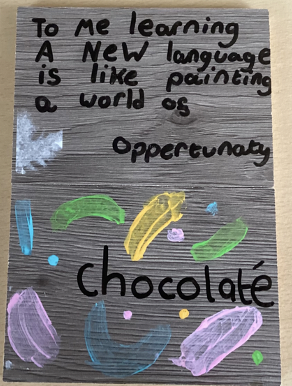 To Me learning
A New language
is like painting
a world os
Oppertunaty
Chocolaté